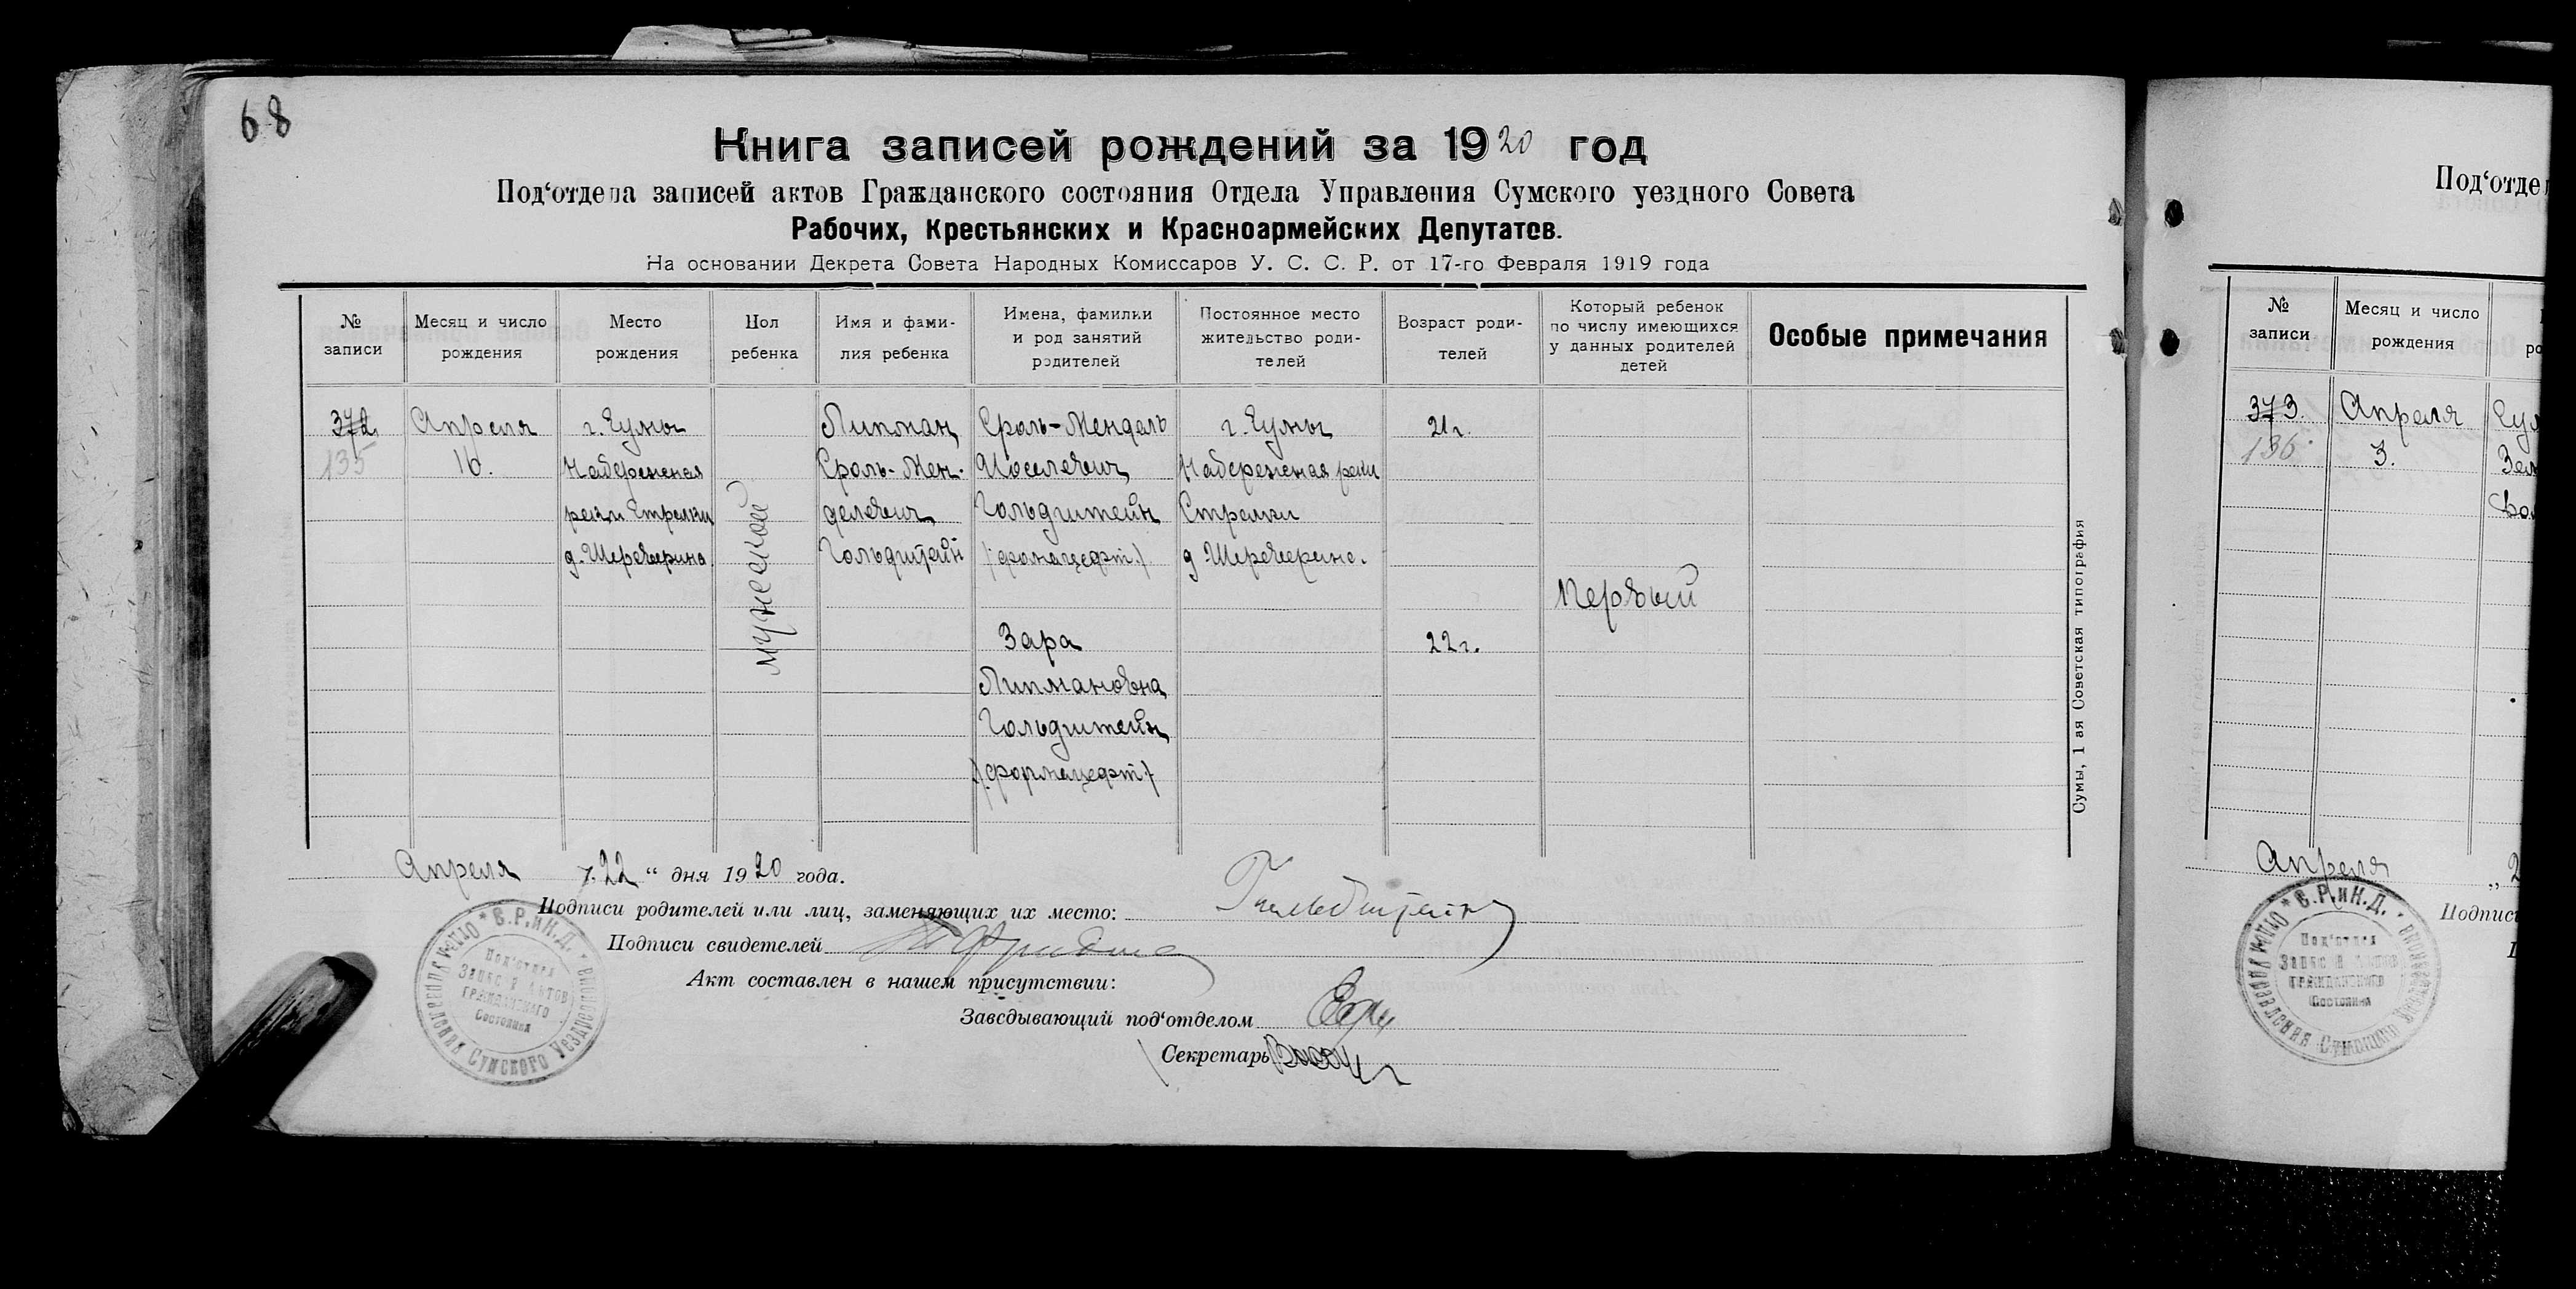 68
Книга записей рождений за 1920 год
Под‘отдела записей актов Гражданского состояния Отдела Управления Сумского уездного Совета
Рабочих, Крестьянских и Красноармейских Депутатов.
На основании Декрета Совета Народных Комиссаров У. С. С. Р. от 17-го Февраля 1919 года
№ записи
Месяц и число рождения
Место рождения
Пол ребенка
Имя и фамилия ребенка
Имена, фамилии и род занятий родителей
Постоянное место жительство родителей
Возраст родителей
Который ребенок по числу имеющихся у данных родителей детей
Особые примечания
372
135
Апреля
16.
г. Сумы
Набережная
реки Стрелки
д.
мужеской
Липман
Сроль-Мен-
делевич
Гольдштейн
Сроль-Мендель
Иоселевич
Гольдштейн
/фармацефт./
Зара
Липмановна
Гольдштейн
/фармацефт./
г. Сумы
Набережная реки
Стрелки
д.
21 г.
22 г.
Первый
Сумы, 1 ая Советская типография
Апреля 22 “ дня 1920 года.
Подписи родителей или лиц, заменяющих их место: Гольдштейн
Подписи свидетелей
Акт составлен в нашем присутствии:
Заведывающий под‘отделом
Секретарь
С.Р.иК.Д.
Под‘отдел
Записей Актов
Гражданского
Состояния
Под‘отдел
№ записи
Месяц и число рождения
373.
136.
Апреля
3.
Апреля „2
С.Р.иК.Д.
Под‘отдел
Записей Актов
Гражданского
Состояния